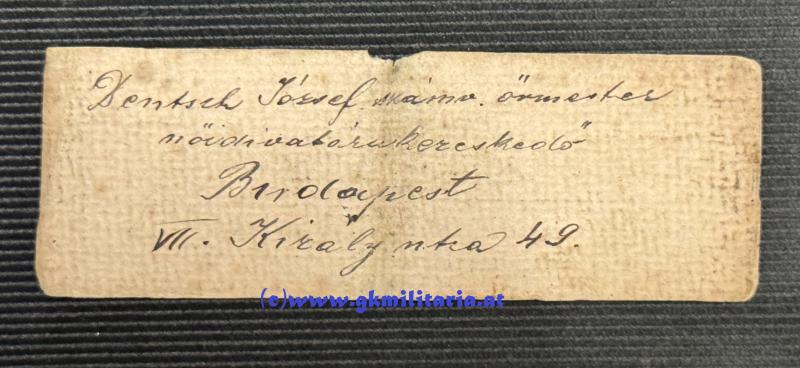 Deutsch József számv. őrmester
nőidivatárukereskedő
Budapest
VII. Király utca 49.
(c)www.gkmilitaria.at